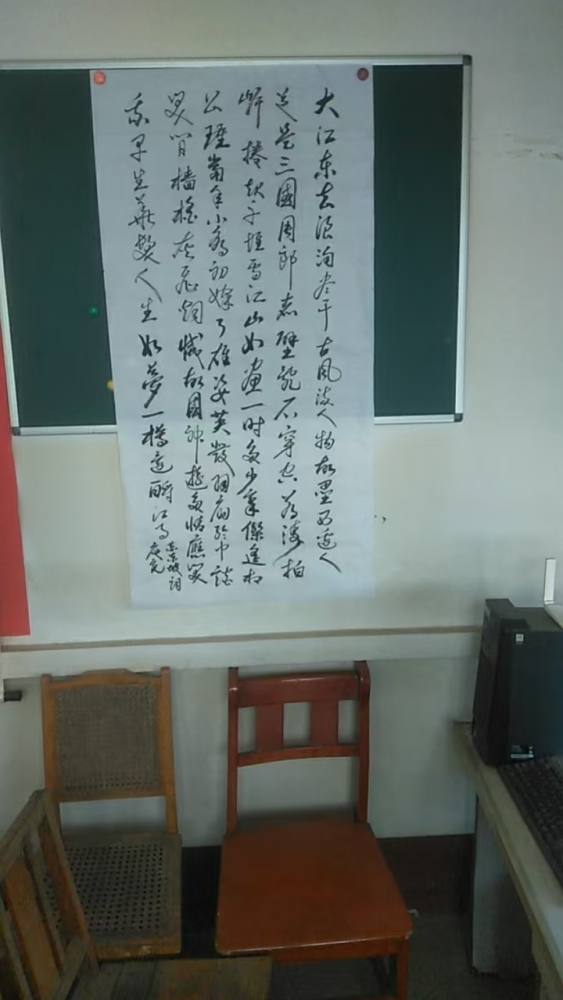 大江东去浪淘尽千古风流人物故垒西边人
道是三國周郎赤壁乱石穿空惊涛拍
岸捲起千堆雪江山如畫一时多少豪傑遥想
公瑾當年小喬初嫁了雄姿英發羽扇纶巾談
笑间檣櫓灰飞烟滅故國神遊多情應笑
我早生華髮人生如夢一樽还酹江月
東坡词